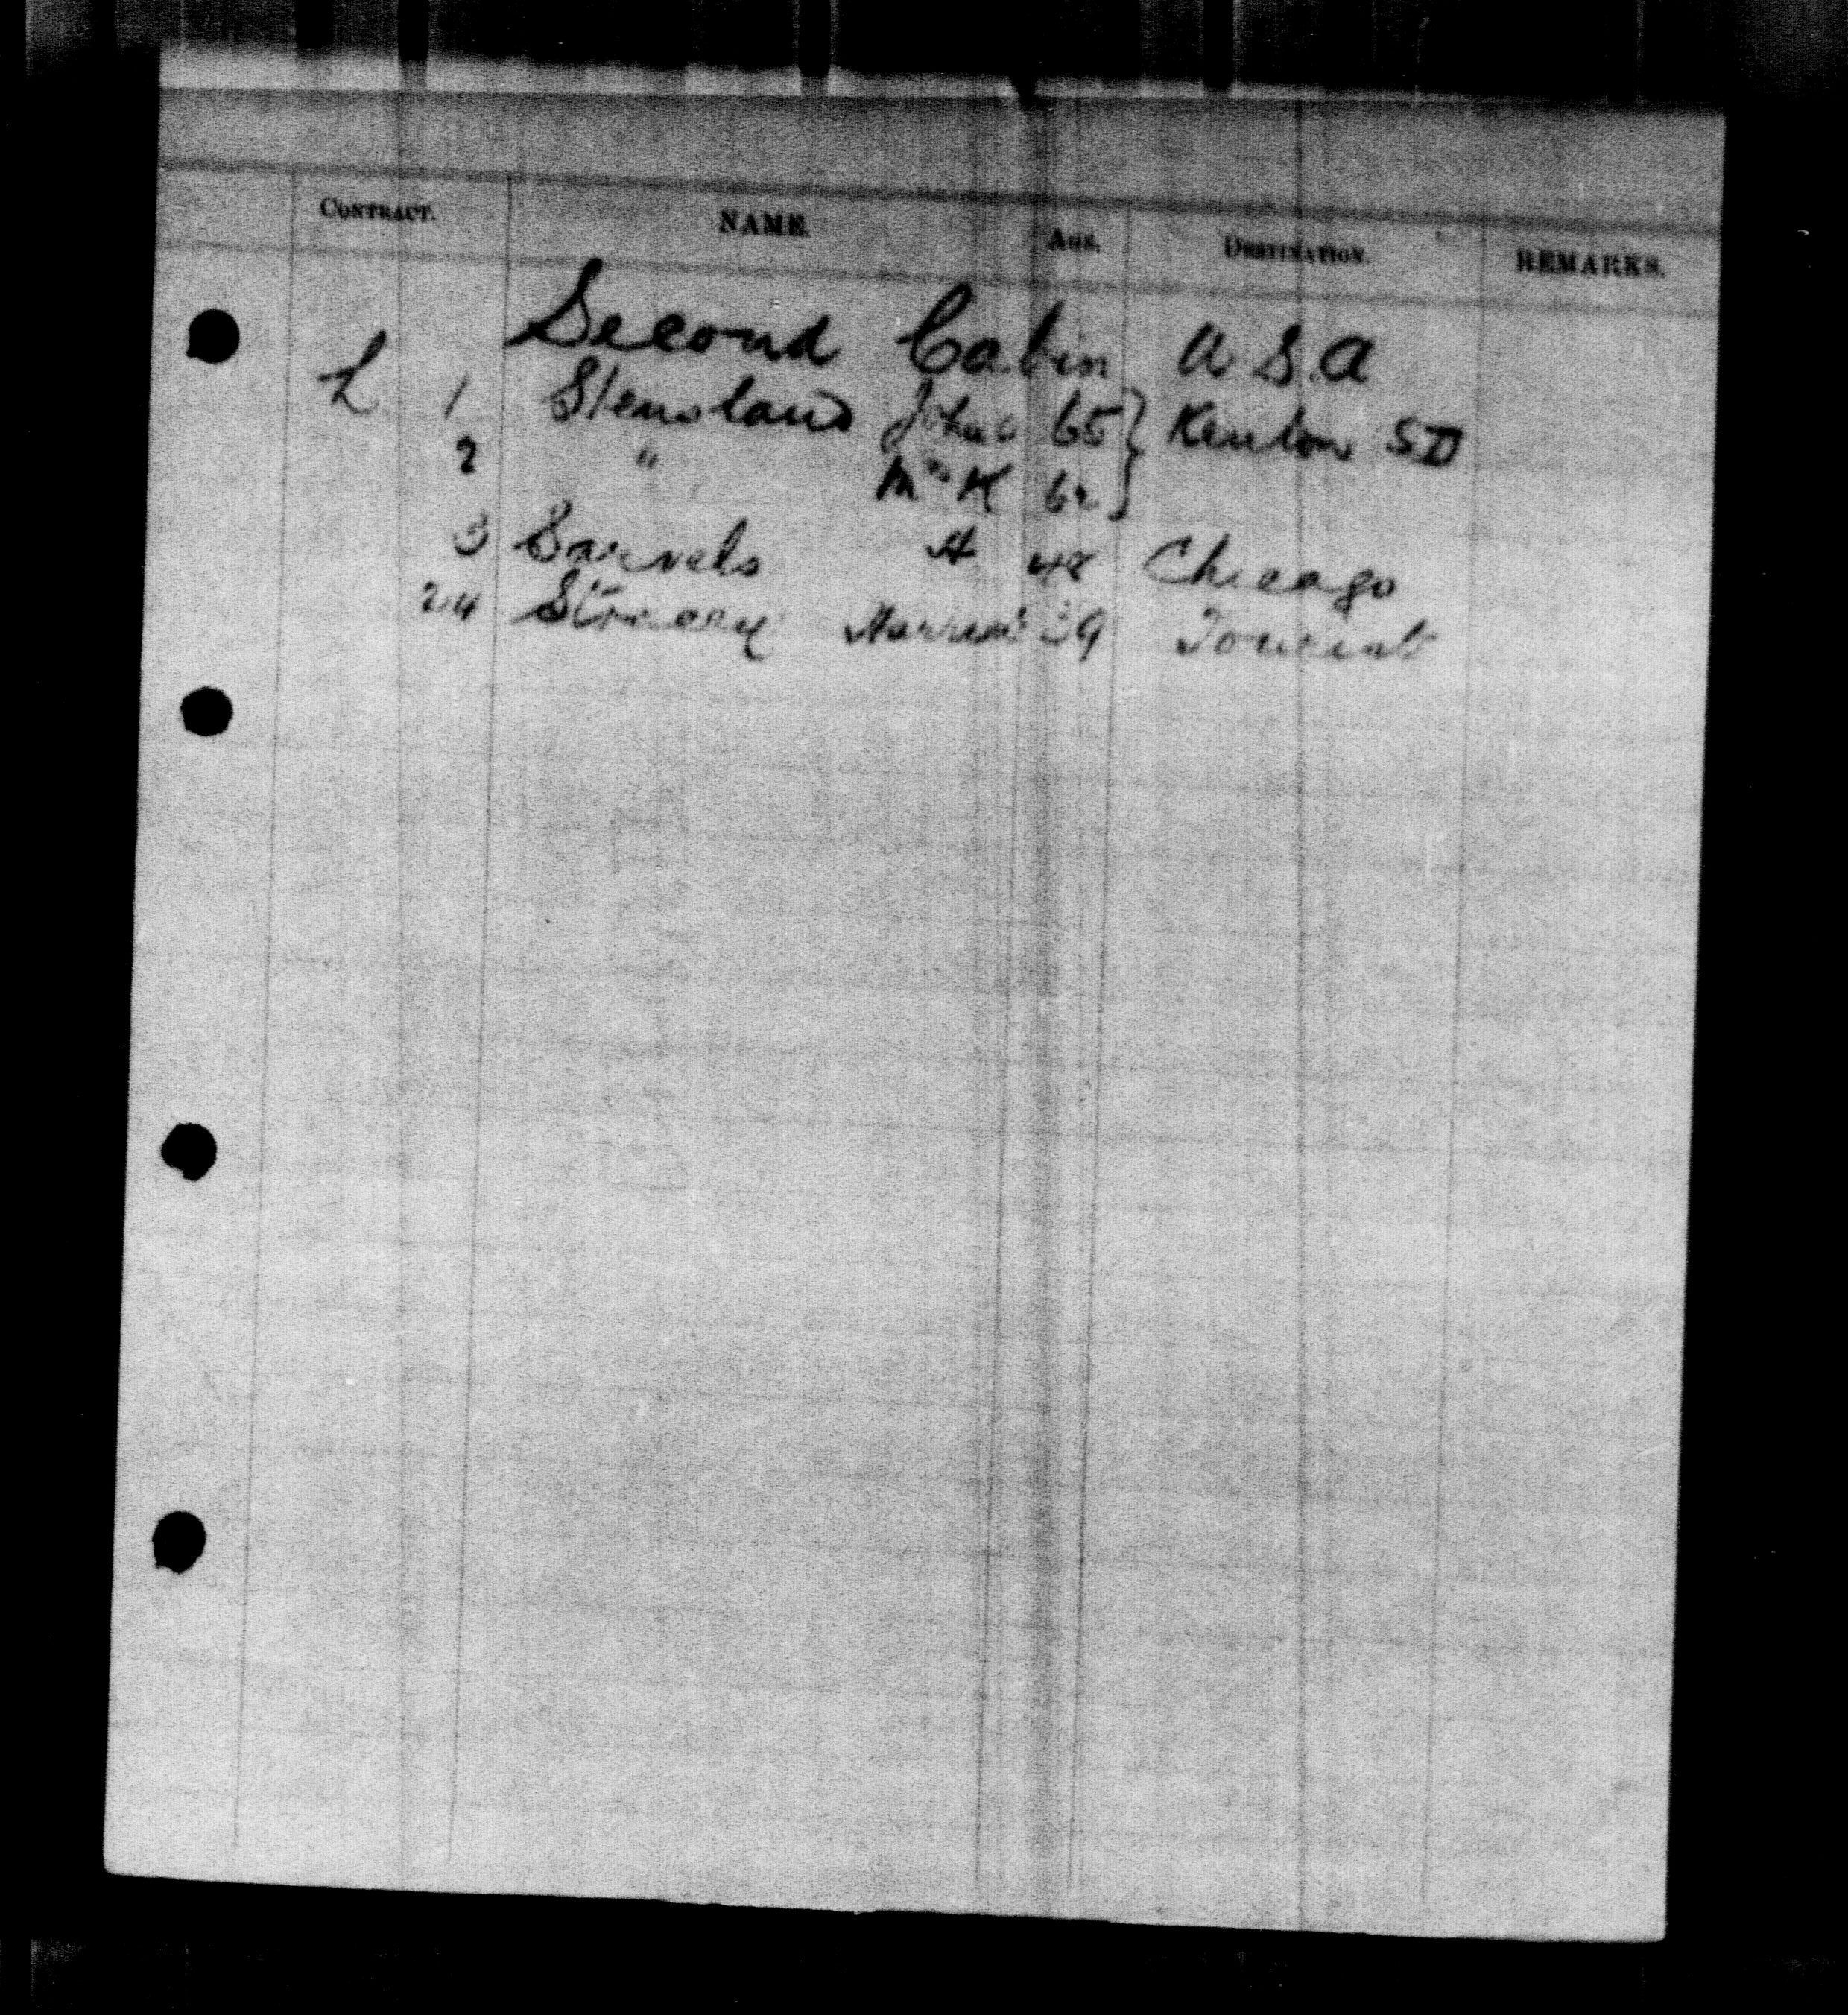 CONTRACT. NAME. AGE. DESTINATION. REMARKS.
Second Cabin U.S.A
L 1 Stensland John 65 } Kenton SD
2 " Mrs K 62 }
3 A 48 Chicago
24 39 Tourist